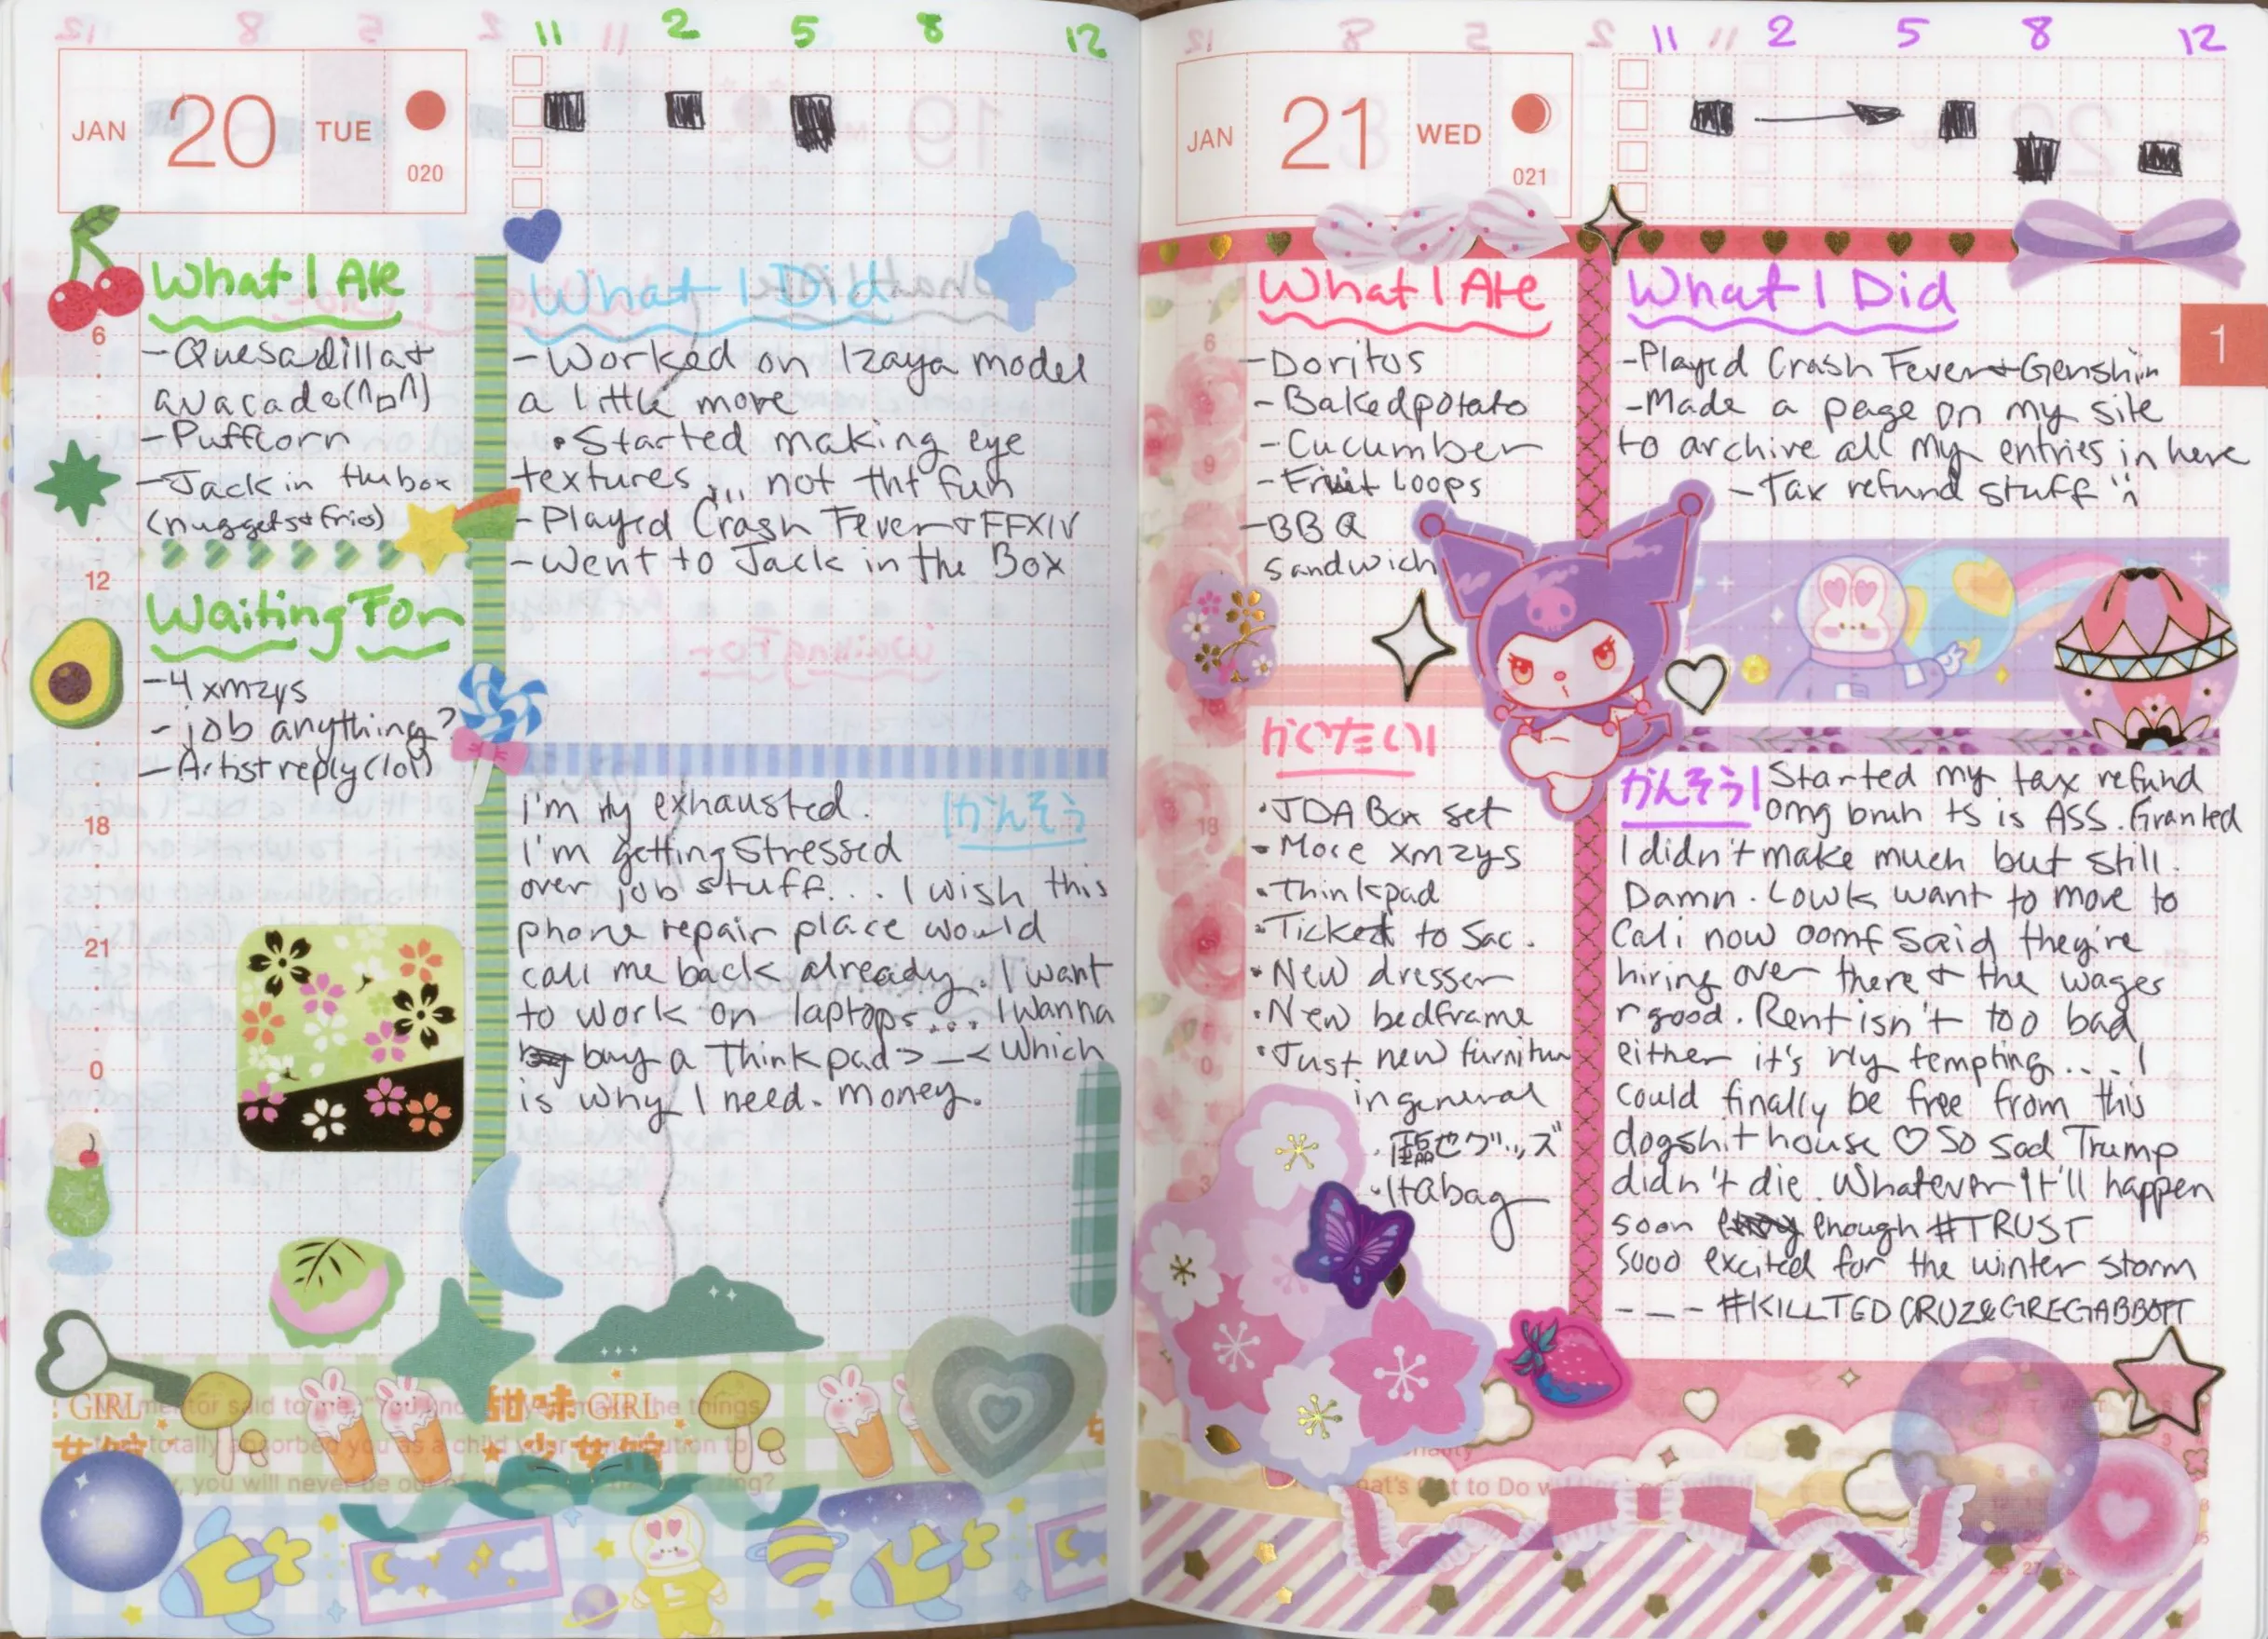 11 2 5 8 12
JAN 20 TUE
020
What I Ate
-Quesadilla+
avacado(^o^)
-Puffcorn
-Jack in the box
(nuggets+fries)
Waiting For
-4 xmzys
- job anything?
-Artist reply (lol)
6
12
18
21
0
What I Did
-Worked on Izaya model
a little more
•Started making eye
textures... not tht fun
-Played Crash Fever+FFXIV
-Went to Jack in the Box
かんそう
i'm rly exhausted.
I'm getting stressed
over job stuff... I wish this
phone repair place would
call me back already. I want
to work on laptops... I wanna
buy a Thinkpad >_< which
is why I need. money.
GIRL
甜味 GIRL
11 2 5 8 12
JAN 21 WED
021
1
What I Ate
-Doritos
-Baked potato
-Cucumber
-Fruit Loops
-BBQ
sandwich
6
9
かいたい!
•JDA Box set
•More xmzys
•Thinkpad
•Ticket to Sac.
•New dresser
•New bedframe
•Just new furniture
in general
•臨也グッズ
•Itabag
What I Did
-Played Crash Fever+Genshin
-Made a page on my site
to archive all my entries in here
-Tax refund stuff
かんそう
Started my tax refund
omg bruh ts is ASS. Granted
I didn't make much but still.
Damn. Lowk want to move to
Cali now oomf said they're
hiring over there + the wages
r good. Rent isn't too bad
either it's rly tempting.... I
could finally be free from this
dogshit house ♡ So sad Trump
didn't die. Whatever it'll happen
soon enough #TRUST
Sooo excited for the winter storm
- - - #KILLTEDCRUZ&GREGABBOTT